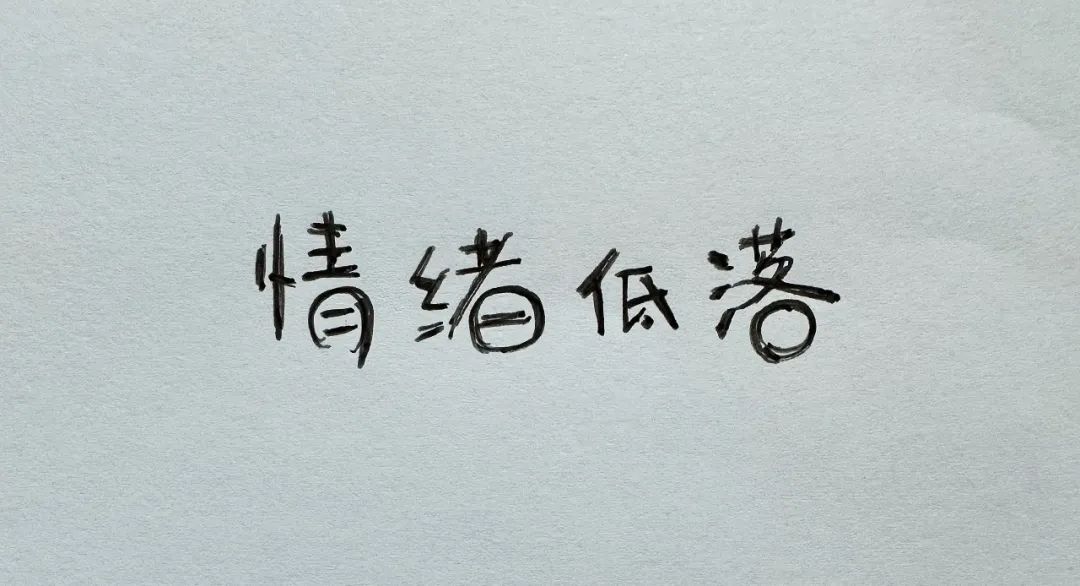 情绪低落